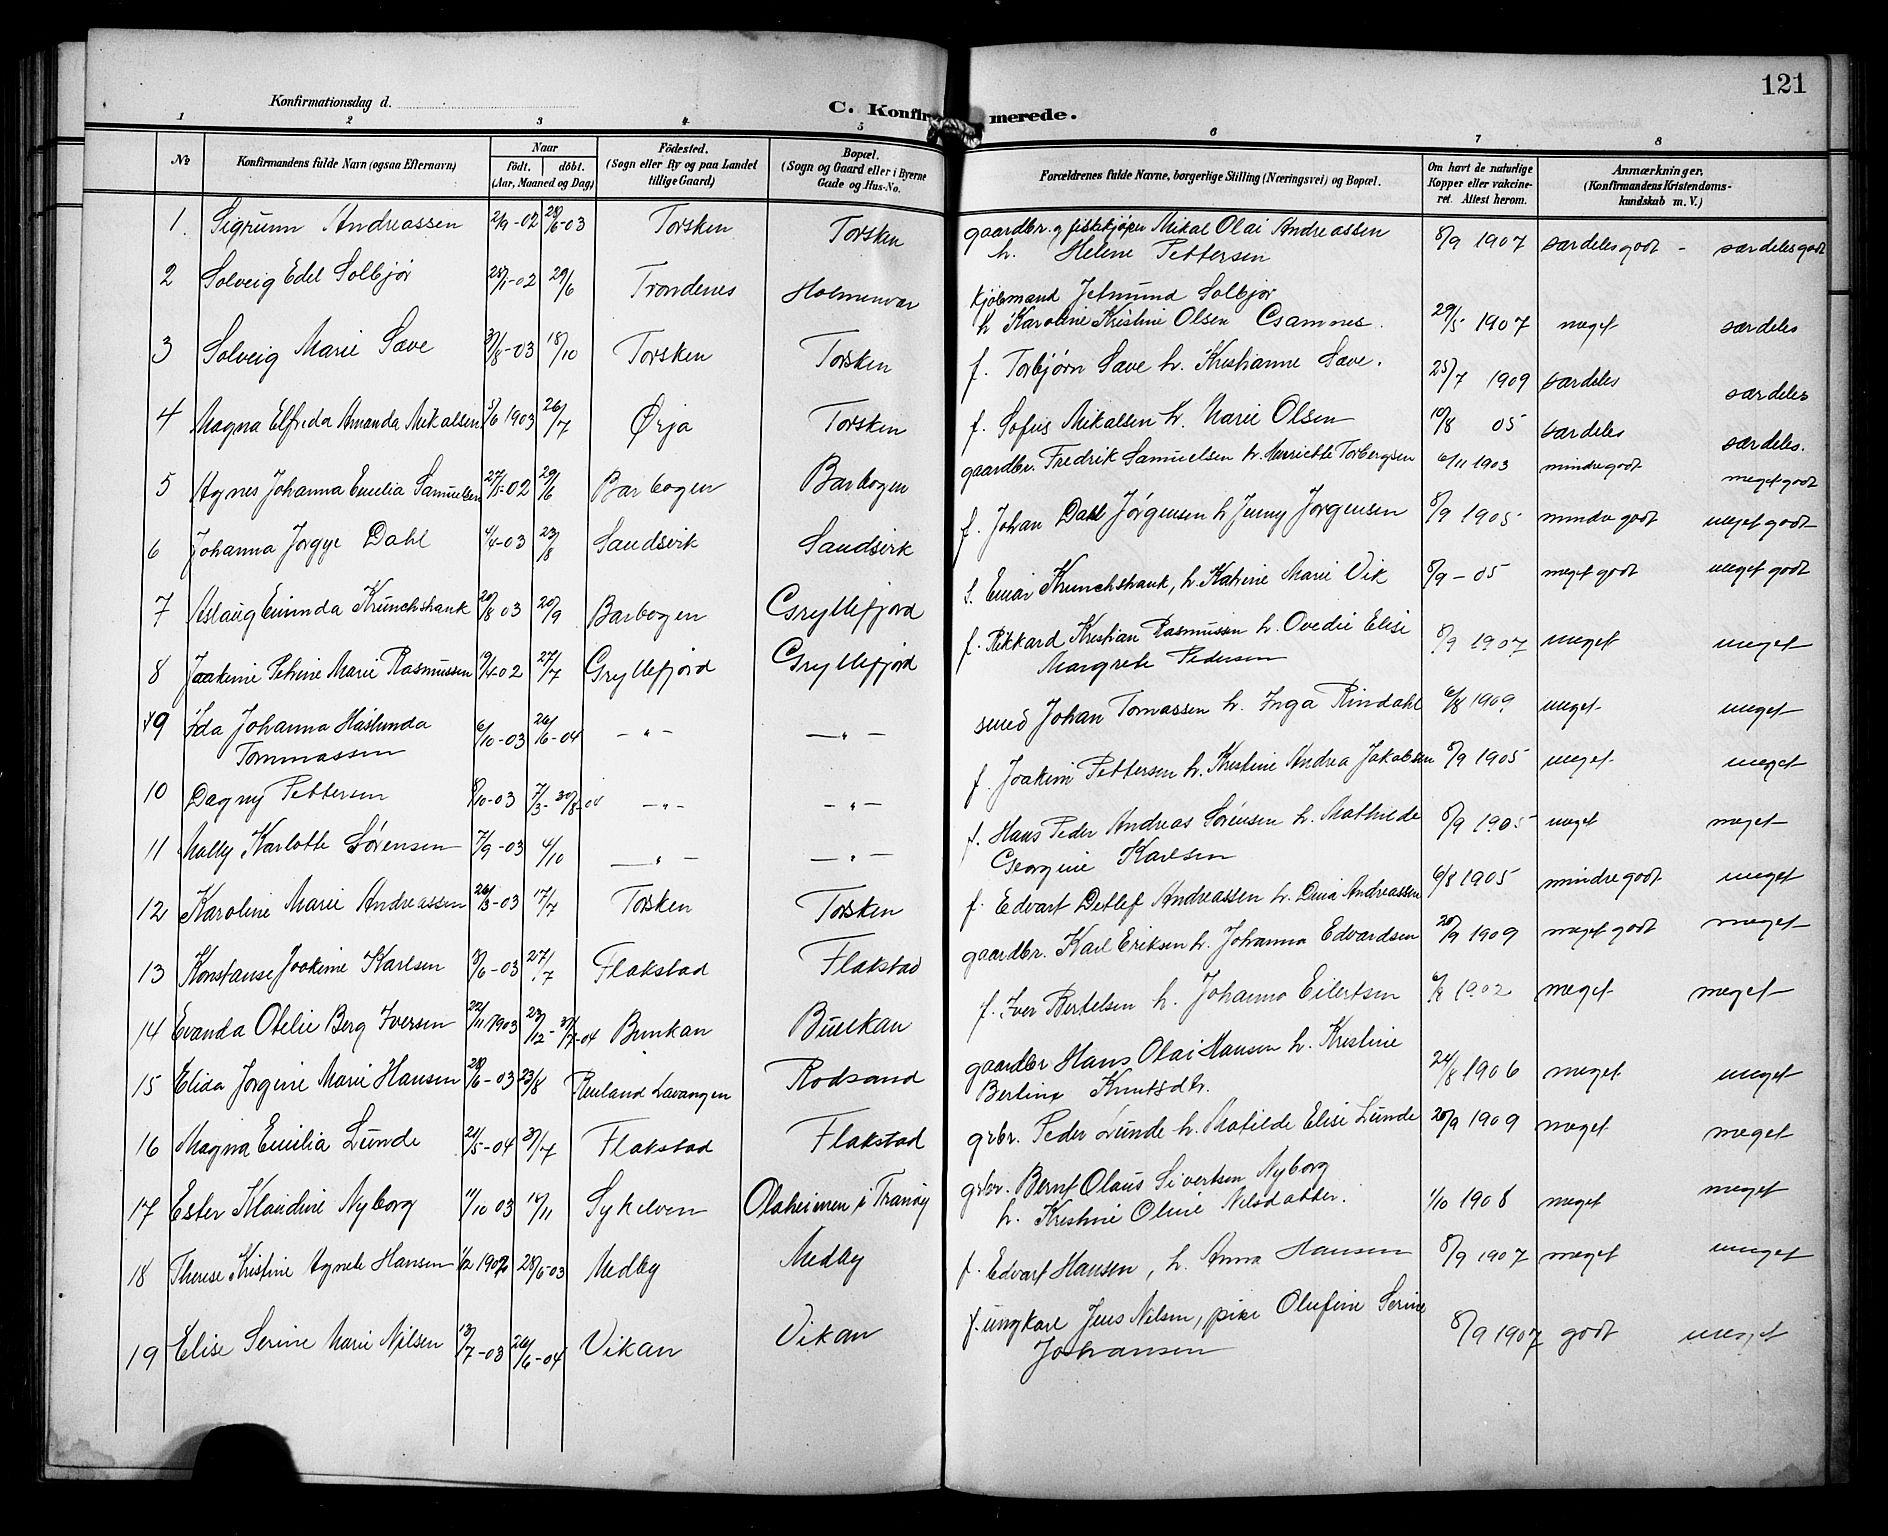 121
Konfirmationsdag d.
C. Konfirmerede.
1 2 3 4 5 6 7 8
№ Konfirmandens fulde Navn (ogsaa Efternavn) Naar födt. döbt. (Aar, Maaned og Dag) Födested. (Sogn eller By og paa Landet tillige Gaard) Bopæl. (Sogn og Gaard eller i Byerne Gade og Hus-No. Forældrenes fulde Navne, borgerlige Stilling (Næringsvei) og Bopæl. Om havt de naturlige Kopper eller vakcineret. Attest herom. Anmærkninger. (Konfirmandens Kristendomskundskab m. V.)
1. Sigrunn Andreassen 2/9-02 28/6-03 Torsken Torsken gaardbr. og fiskekjøper Mikal Olai Andreassen 8/9 1907 særdeles godt - særdeles godt
h. Helene Pettersen
2 Solveig Edel Solbjør 02 29/6 Trondenes kjøbmand Jetmund Solbjør
h Karoline Kristine Olsen 29/5 1907 meget særdeles
3 Solveig Marie Save 03 18/10 Torsken Torsken f. Torbjørn Save h. Kristianne Save. 25/7 1909 særdeles særdeles
4 Magna Elfrida Amanda Mikalsen 5/6 1903 26/7 Ørja Torsken f. Sofus Mikalsen h. Marie Olsen 10/8 05 særdeles særdeles.
5 Agnes Johanna Emelia Samuelsen 27/5-02 29/6 Barbogen Barbogen gaardbr. Fredrik Samuelsen h. Torbergsen 6/11 1903 mindre godt meget godt
6 Johanna Jørgye Dahl 4/4-03 23/8 Sandsvik Sandsvik f. Johan Dahl Jørgensen h Jenny Jørgensen 8/9 1905 mindre godt meget godt
7 Aslaug 20/8 03 20/9 Barbogen Gryllefjord f. h. Katrine Marie Vik 8/9 - 05 meget godt meget godt
8 Joakime Petrine Marie Rasmussen 19/4-02 27/7 Gryllefjord Gryllefjord f. Rikkard Kristian Rasmussen h. Ovedie Elise 8/9 1907 meget meget
Margrete Pedersen
9 Ida Johanna Haslunda 6/10-03 26/6-04 -"- -"- smed Johan Tomassen h. Inga Rindahl 6/8 1909 meget meget
Tommassen
10 Dagny Pettersen 8/10-03 7/3- 30/8-04 -"- -"- f. Joakim Pettersen h. Kristine Andrea Jakobsen 8/9 1905 meget meget
11 Mally Karlotte Sørensen 7/9-03 4/10 -"- -"- f. Hans Peder Andreas Sørensen h. Mathilde 8/9 1905 meget meget
Georgine Karlsen
12 Karoline Marie Andreassen 26/3-03 17/7 Torsken Torsken f. Edvart Detlef Andreassen h. Dina Andreassen 6/8 1905 mindre godt meget
13 Konstanse Joakime Karlsen 3/6-03 27/7 Flakstad Flakstad gaardbr. Karl Eriksen h. Johanna Edvardsen 20/9 1909 meget godt meget
14 Evanda Otelie Berg Iversen 22/11 1903 23/12 04 Bunkan Bunkan f. Iver Bertelsen h. Johanna Eilertsen 1902 meget meget
15 Elida Jørgine Marie Hansen 28/6-03 23/8 Lavangen Rodsand gaardbr Hans Olai Hansen h. Kristine 24/8 1906 meget meget
Bertine Knutsdtr.
16 Magna Emilia Lunde 21/5-04 31/7 Flakstad Flakstad grbr. Peder Lunde h. Matilde Elise Lunde 20/9 1909 meget meget
17 Ester Klaudine Nyborg 11/10 03 15/11 Sykelven Olaheimen i Tranøy grbr. Bernt Olaus Sivertsen Nyborg 1/10 1908 meget meget
h. Kristine Oline Nilsdatter.
18 Therese Kristine Agnete Hansen 28/6-03 Medby Medby f. Edvart Hansen, h. Anna Hansen 8/9 1907 meget meget
19 Elise Serine Marie Nilsen 13/7-03 26/6-04 Vikan Vikan f. ungkarl Jens Nilsen, pike Olufine Serine 8/9 1907 godt meget
Johansen